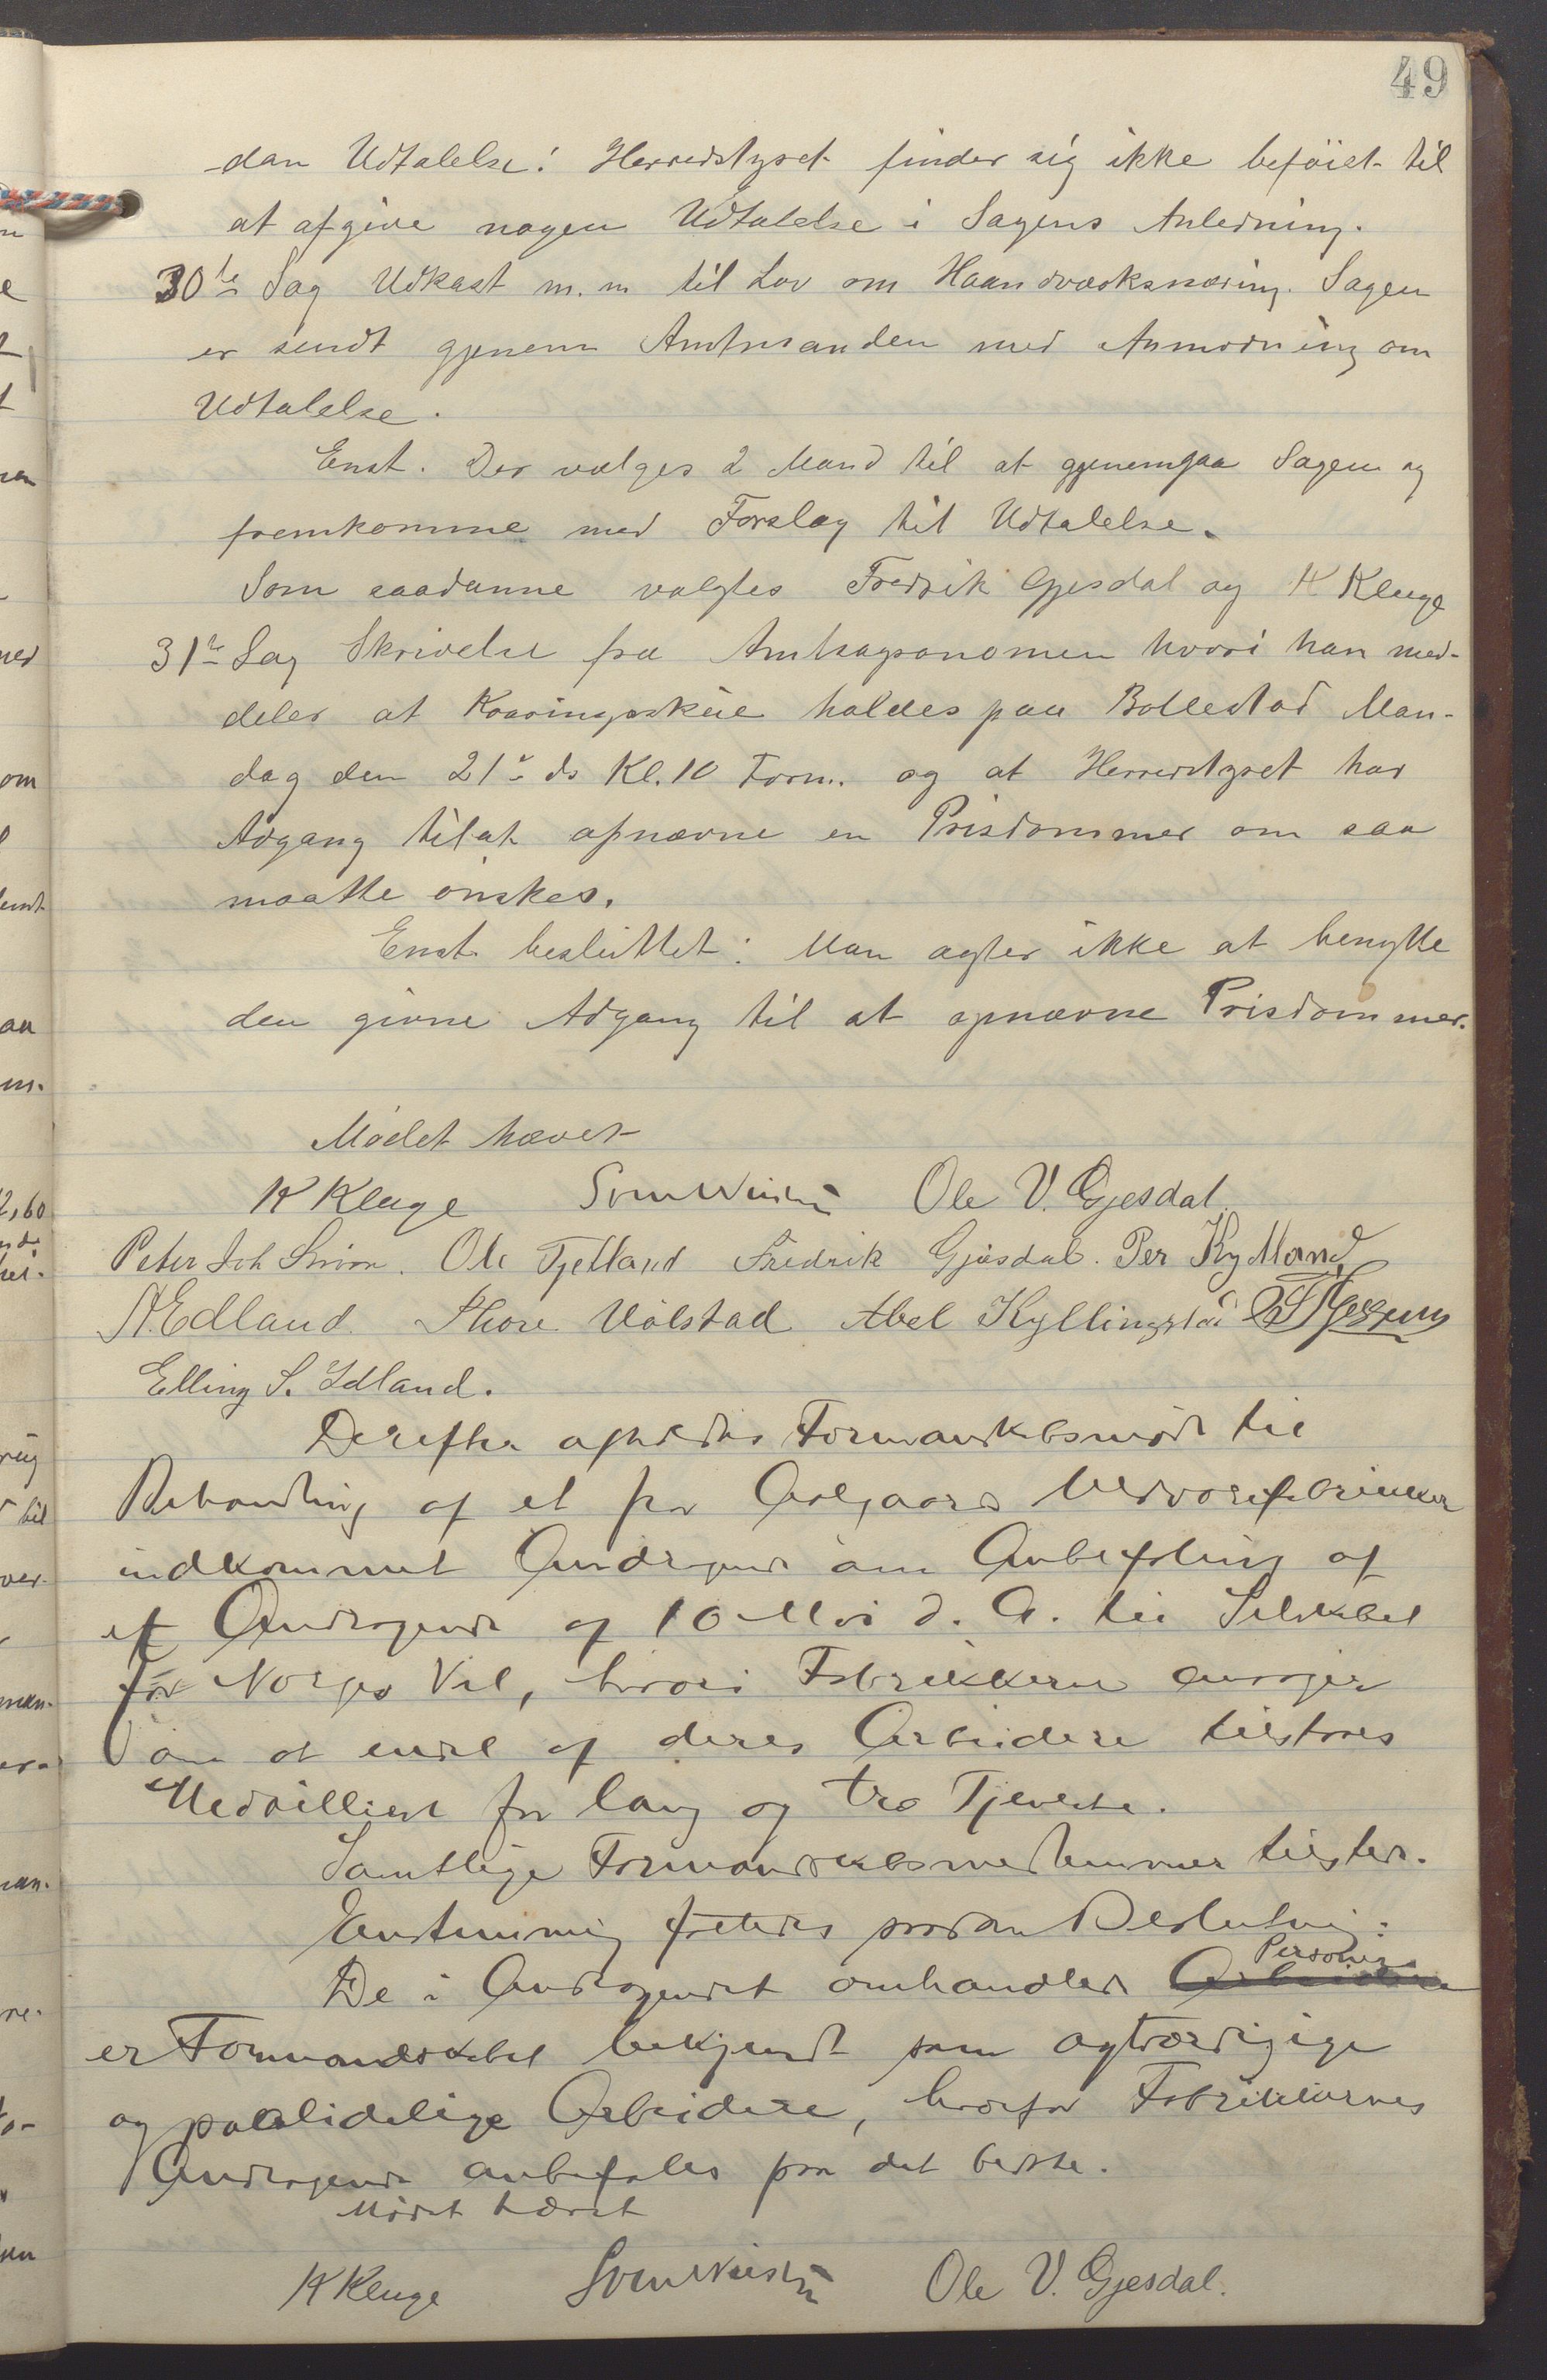 49
dan Udtalelse: Herredstyret finder sig ikke beföiet til
at afgive nogen Udtalelse i Sagens Anledning.
30te Sag Udkast m. m til Lov om Haandværksnæring. Sagen
er sendt gjenem Amtmanden med Anmodning om
Udtalelse.
Enst. Der vælges 2 Mand til at gjenemgaa Sagen og
fremkomme med Forslag til Udtalelse.
Som saadanne valgtes Fredrik Gjesdal og K Kluge
31te Sag Skrivelse fra Amtsagronomen hvori han med-
deler at Kaaringsskue holdes paa Bollestad Man-
dag den 21de ds Kl. 10 Form. og at Herredstyret har
Adgang tilat opnævne en Prisdommer om saa
maatte önskes.
Enst. besluttet: Man agter ikke at benytte
den givne Adgang til at opnævne Prisdommer.
Mödet hævet
K Kluge Ole V. Gjesdal
Peter Ole Fjetland Fredrik Gjösdal. Per Kylland
A. Edland. Thore Ualstad Abel Kyllingstad
Elling S. Idland.
Derefter afholdtes Formandskabsmøde til
Behandling af et fra Aalgaards Uldvarefabrikker
indkommet Andragende om Anbefaling af
et Andragende af 10 Mai d. A. til Selskabet
for Norges Vel, hvori Fabrikkerne ansøger
om at endel af deres Arbeidere tilstaaes
Medaillier for lang og tro Tjeneste.
Samtlige Formandskabsmedlemmer tilstede.
Enstemmig fattedes saadan Beslutning:
De i Andragendet omhandlede Arbeidere Personer
er Formandskabet bekjendt som agtværdigige
og paalidelige Arbeidere, hvorfor Fabrikkernes
Andragende anbefales paa det bedste.
Mødet hævet
K Kluge Ole V. Gjesdal.